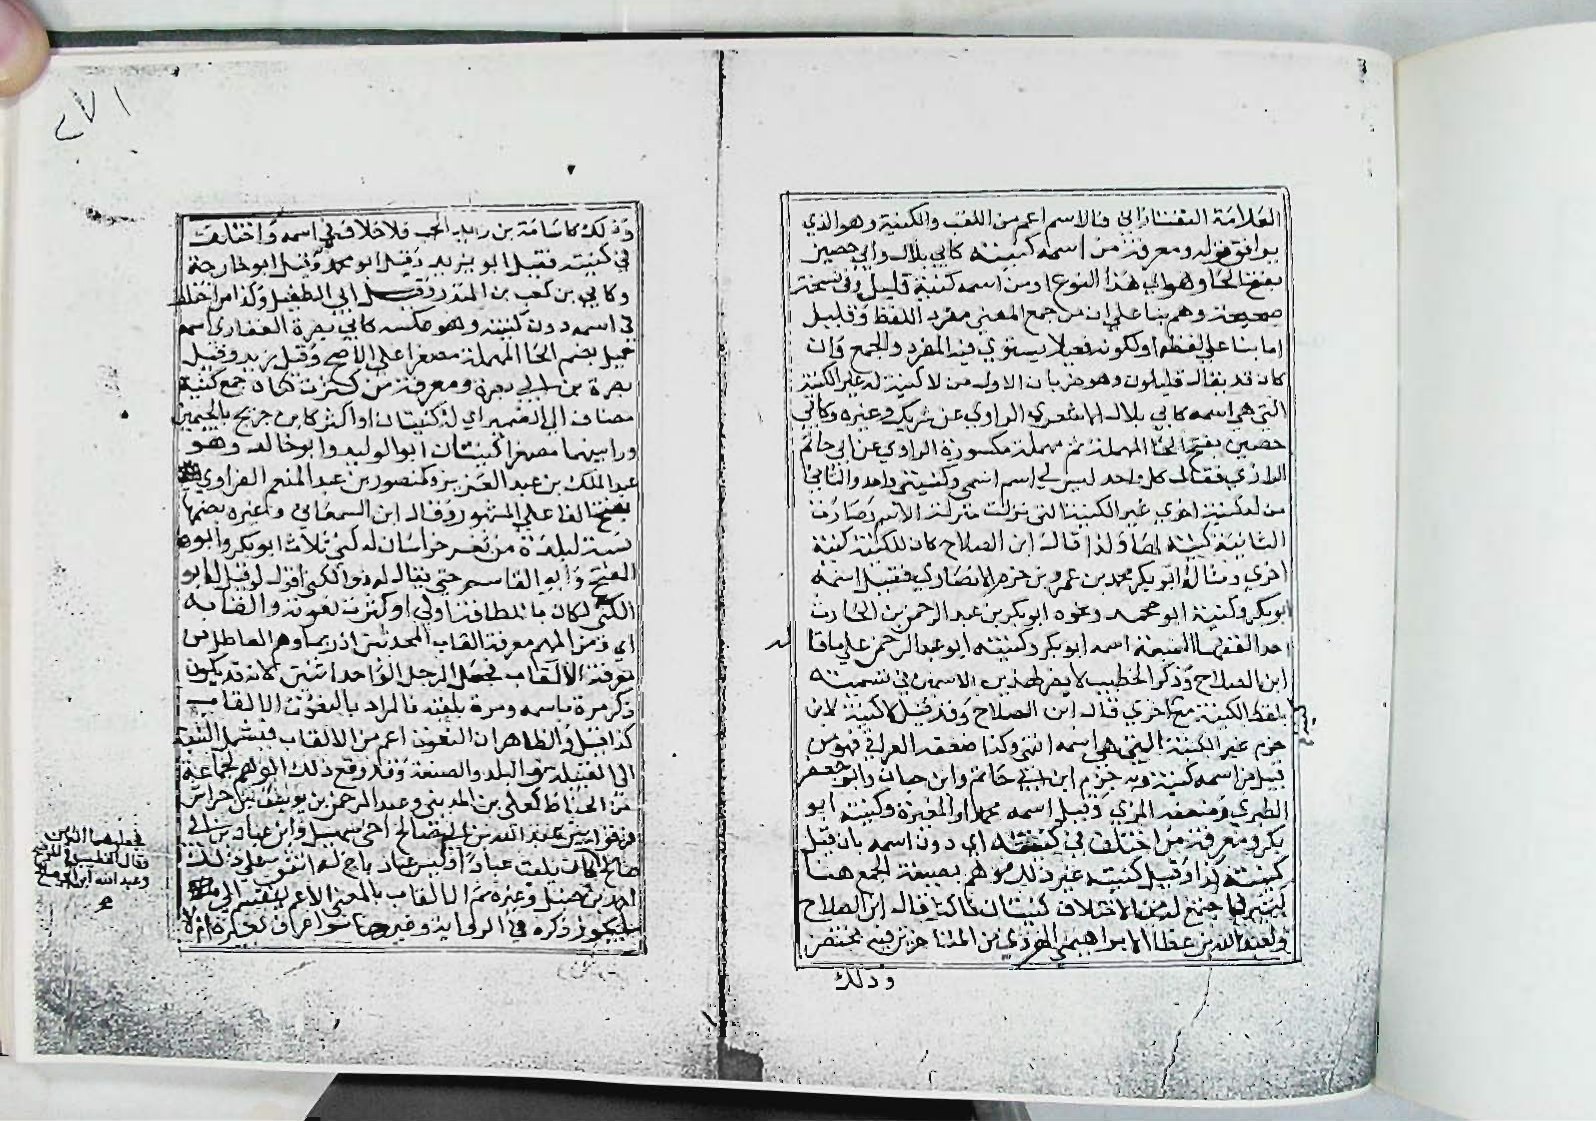 العلامة التفتازاني قال الاسم اعم من اللقب والكنية وهو الذي
يوافق قوله ومعرفة من اسمه كنيته كابي بلال وابي حصين
بفتح الحا وهو اي هذا النوع او من اسمه كنيته قليل وفي نسخة
صحيحة وهم بنا على ان من جمع المعنى مفرد اللفظ وقليل
اما بنا على لفظه او لكونه فعيلا يستوي فيه المفرد والجمع وان
كان قد يقال قليلون وهو ضربان الاول من لا كنية له غير الكنية
التي هي اسمه كابي بلال الاشعري الراوي عن شريك وغيره وكابي
حصين بفتح الحا المهملة ثم مهملة مكسورة الراوي عن ابي حاتم
الرازي فقال كل واحد ليس لي اسم اسمي وكنيتي واحد والثاني
من له كنية اخري غير الكنية التي نزلت منزلة الاسم وصارت
الثانية كنية لها ولذا قال ابن الصلاح كان للكنية كنية
اخري ومثاله ابو بكر محمد بن عمرو بن حزم الانصاري فقيل اسمه
ابو بكر وكنيته ابو محمد ونحوه ابو بكر بن عبد الرحمن بن الحارث
احد الفقها السبعة اسمه ابو بكر وكنيته ابو عبد الرحمن على ما قا
ابن الصلاح وذكر الخطيب لا نظير لهذين الاسمين في تسميته
بلفظ الكنية مع اخري قال ابن الصلاح وقد قيل لا كنية لابن
حزم غير الكنية التي هي اسمه انتهى وكذا ضعفه العراقي فهو من
قبيل من اسمه كنية وبه جزم ابن ابي حاتم وابن حبان وابو جعفر
الطبري وضعفه المزي وقيل اسمه محمد او المغيرة وكنيته ابو
بكر ومعرفة من اختلف في كنيته اي دون اسمه بان قيل
كنيته كذا وقيل كنيته غير ذلك وهم بصيغة الجمع هنا
كثير
قال ابن الصلاح
ولعبد الله بن عطا الابراهيمي الهروي من المتاخرين فيه مختصر
وذلك
٢٧١
وذلك كاسامة بن زيد الحب فلا خلاف في اسمه واختلف
في كنيته فقيل ابو يزيد وقيل ابو محمد وقيل ابو خارجة
وكابي بن كعب بن المنذر وقيل ابي الطفيل وكذا من اختلف
في اسمه دون كنيته وهو عكسه كابي بصرة الغفاري اسمه
حميل بضم الحا المهملة مصغرا على الاصح وقيل زيد وقيل
بصرة بن ابي بصرة ومعرفة من كثرت كناه جمع كنية
مضاف الى الضمير اي له كنيتان او اكثر كابن جريج بالجيمين
ورا بينهما مصغرا كنيتان ابو الوليد وابو خالد وهو
عبد الملك بن عبد العزيز وكمنصور بن عبد المنعم الفراوي
بفتح الفا على المشهور وقال ابن السمعاني وغيره بضمها
نسبة لبلدة من ثغر خراسان له كنى ثلاث ابو بكر وابو
الفتح وابو القاسم حتى يقال له ذو الكنى اقول لو قيل له ابو
الكنى لكان بالمطافة اولى او كثرت نعوته والقابه
اي ومن المهم معرفة القاب المحدثين اذ ربما وهم العاطل من
معرفة الالقاب فجعل الرجل الواحد اثنين لانه قد يكون
ذكر مرة باسمه ومرة بلقبه فالمراد بالنعوت الالقاب
كذا قيل والظاهر ان النعوت اعم من الالقاب فيشمل النسبة
الى القبيلة والبلد والصنعة وقد وقع ذلك الوهم لجماعة
من الحفاظ كعلي بن المديني وعبد الرحمن بن يوسف بن خراش
فرقوا بين عبد الله بن ابي صالح اخي سهيل وابن عباد بن ابي
صالح
احمد بن حنبل وغيره ثم الالقاب بالمعنى الاعم تنقسم الى ما
يجوز ذكره في الرواية وغيرها سوا عرف بغيره ام لا
فجعلهما اثنين